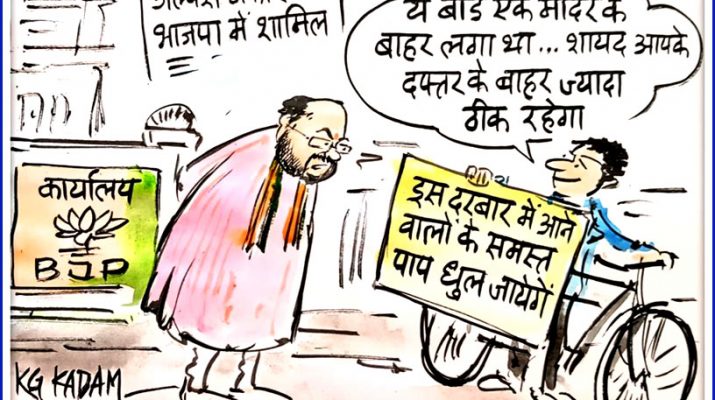 भाजपा में शामिल
ये बोर्ड एक मंदिर के
बाहर लगा था... शायद आपके
दफ्तर के बाहर ज्यादा
ठीक रहेगा
कार्यालय
BJP
इस दरबार में आने
वालो के समस्त
पाप धुल जायेगें
KG KADAM